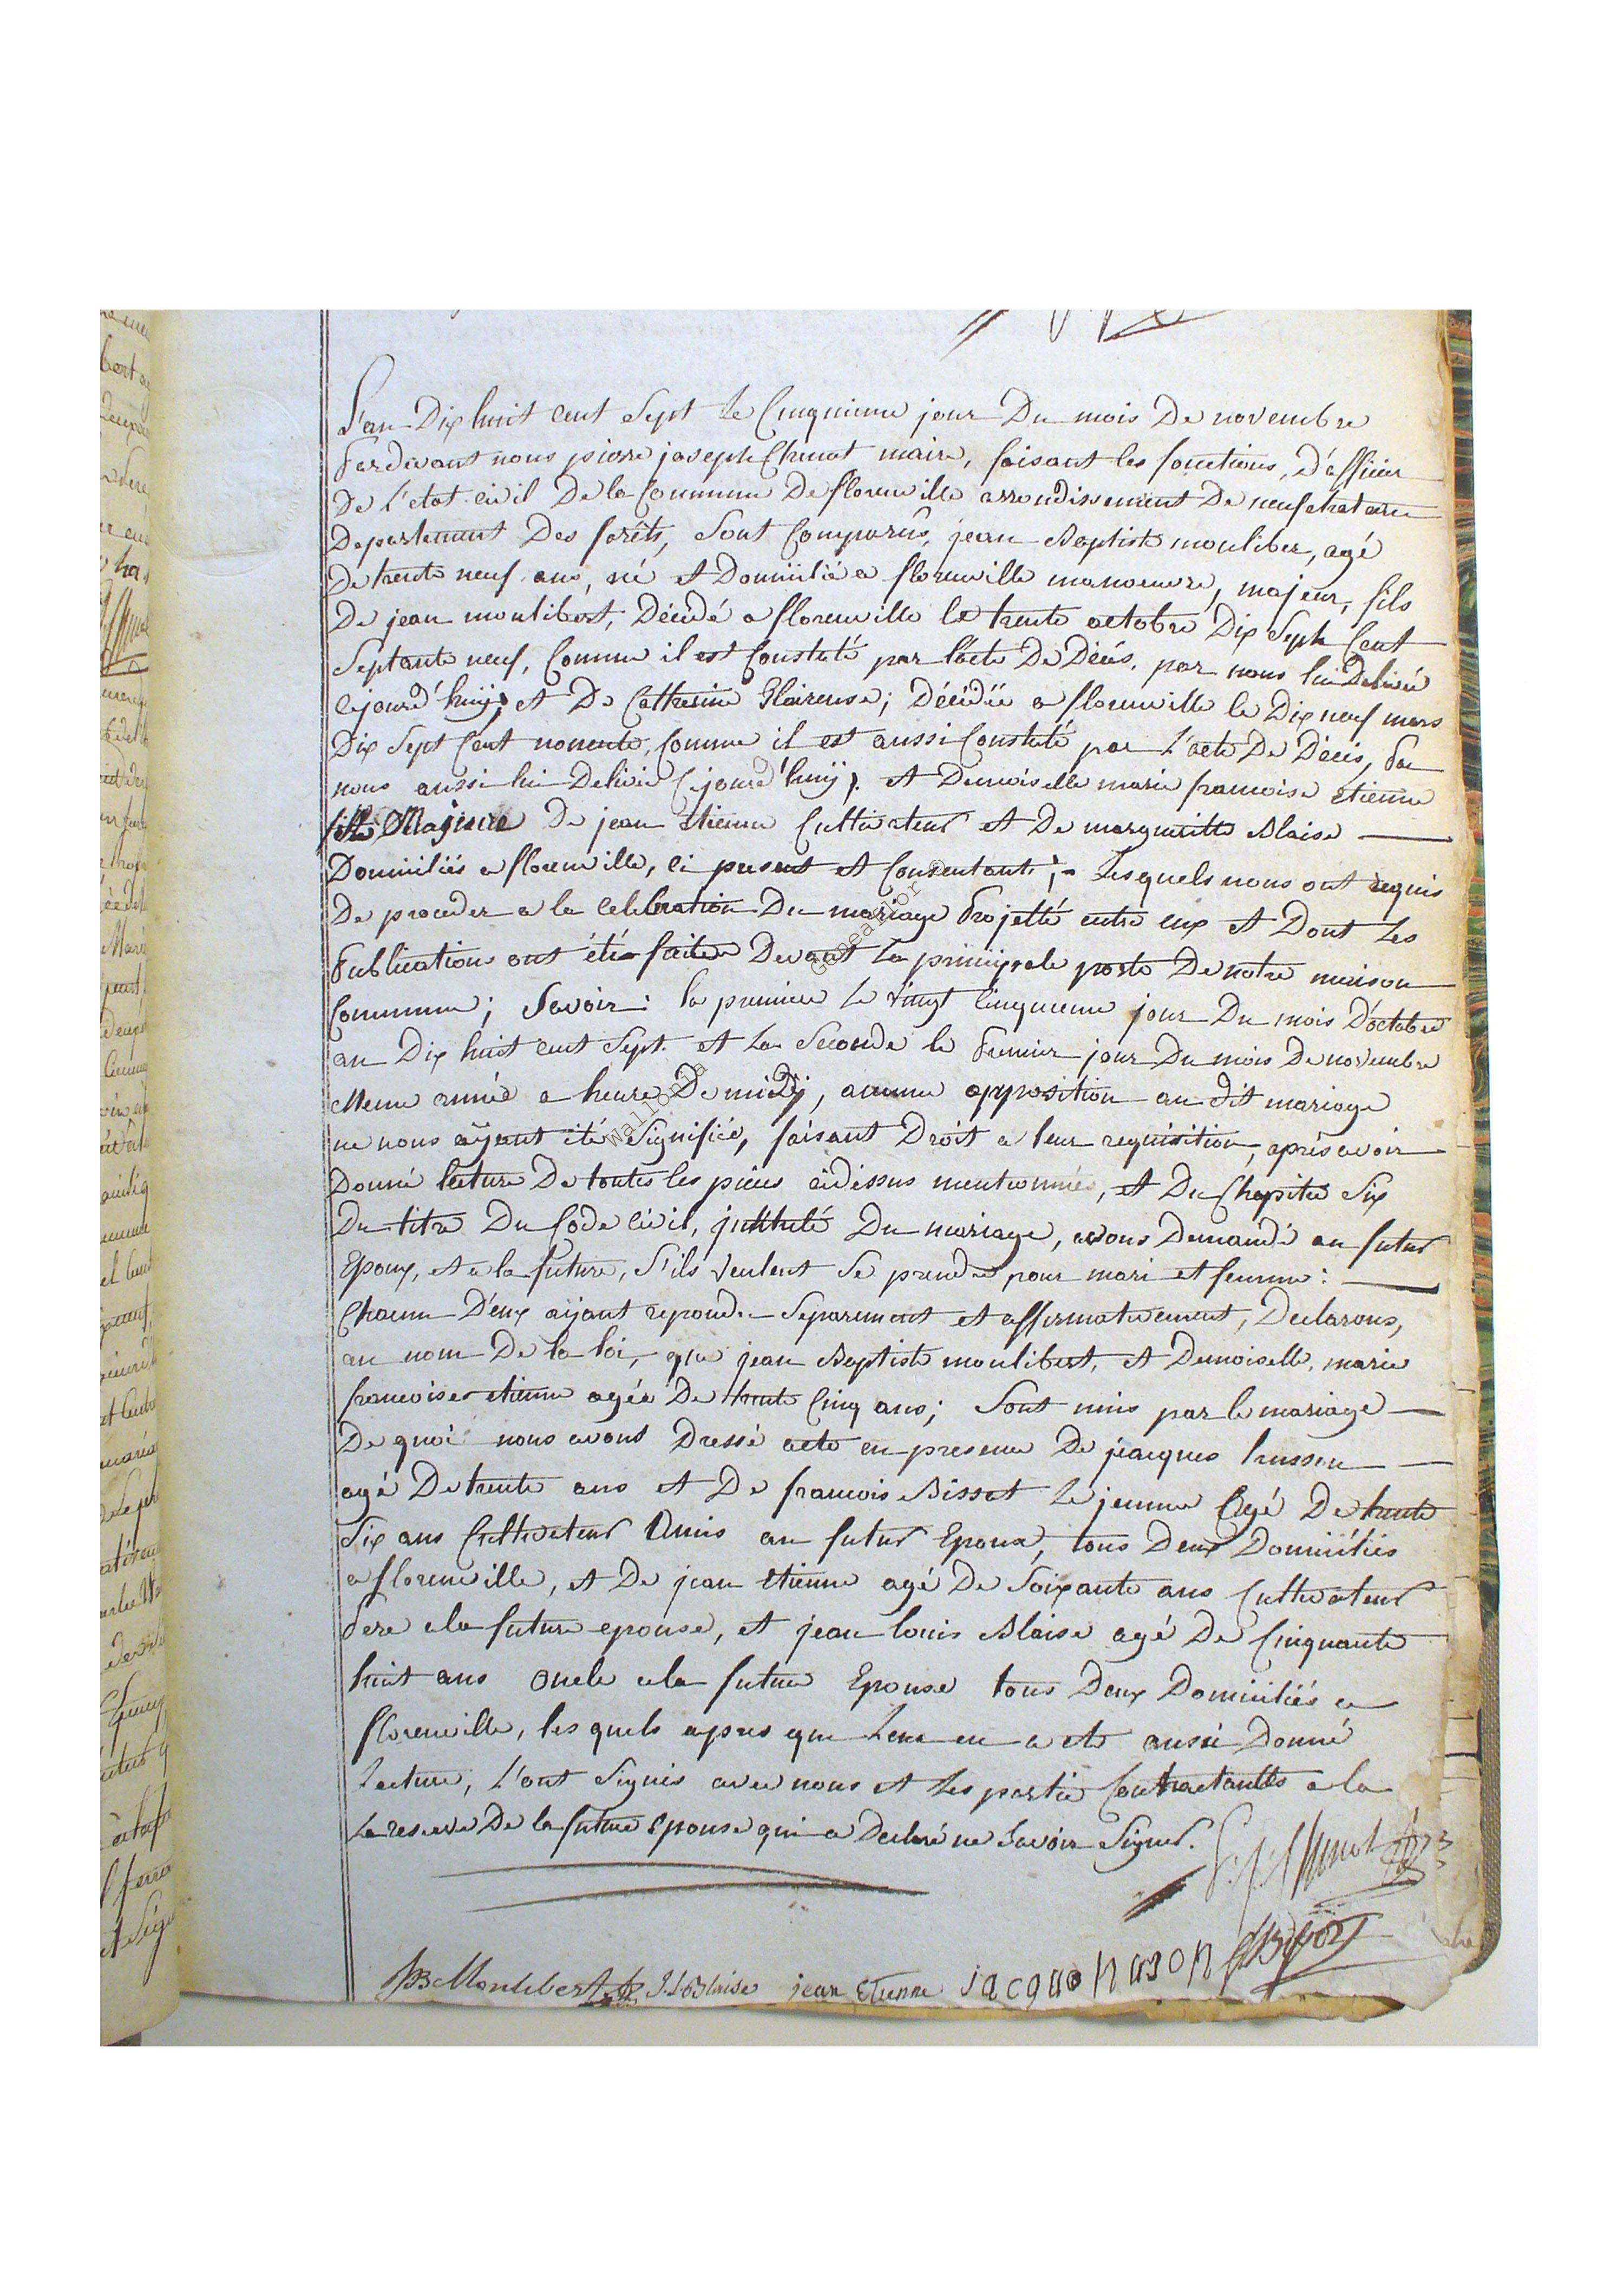 L'an Dix huit cent Sept Le Cinquieme jour Du mois De novembre
Pardevant nous pierre joseph Chenot maire, faisant les fonctions, D'officier
De l'etat civil De la Commune De florenville arrondissement De neufchateau
Departement Des forêts, Sont Comparûs, jean Baptiste mouliber, agé
De trente neuf ans, né et Domicilié a florenville manoeuvre, majeur, fils
De jean moulibert, Décédé a florenville le trente octobre Dix Sept Cent
Septante neuf, Comme il est Constaté par l'acte De Décés, par nous lui Delivré
cejourd'huij, et De Catherine Glaireuse; Décédée a florenville le Dix neuf mars
Dix Sept Cent nonente, Comme il est aussi Constaté par L'acte De Décés, Par
nous aussi lui Delivré Cejourd'huij; et Demoiselle marie francoise etienne
fille Majeure De jean etienne Cultivateur et De margueritte Blaise
Domiciliés a florenville, ci present et Consentant; Lesquels nous ont requis
De proceder a la Celebration Du mariage Projetté entre eux et Dont Les
Publications ont été faites Devant La principale porte De notre maison
Commune; Savoir: la premiere Le Vingt Cinquieme jour Du mois D'octobre
an Dix huit cent Sept et La Seconde le Premier jour Du mois De novembre
Meme année a heure De midij, aucune opposition au dit mariage
ne nous aÿant été Signifiée, faisant Droit a leur requisition, aprés avoir
Donné lecture De toutes les piéces cidessus mentionnées, et Du Chapitre Six
Du titre Du Code Civil, jntitulé Du mariage, avons Demandé au futur
Epoux, et a la future, S'ils Veulent Se prendre pour mari et femme:
Chacun D'eux aÿant repondu Separement et affirmativement, Declarons,
au nom De la loi, que jean Baptiste moulibert, et Demoiselle, marie
francoise etienne agée De trente Cinq ans; Sont unis par le mariage
De quoi nous avons Dressé acte en presence De jacques
agé De trente ans et De francois Bissot Le jeunne agé De trente
Six ans Cultivateur Amis au futur Epoux, tous Deux Domiciliés
a florenville, et De jean etienne agé De Soixante ans Cultivateur
Pere a la future epouse, et jean louis Blaise agé De Cinquante
huit ans oncle a la future Epouse tous Deux Domiciliés a
florenville, les quels apres que Leur en a eté aussi Donné
Lecture, L'ont Signés avec nous et Les partie Contractantes a la
La reserve De la future Epouse qui a Declaré ne Savoir Signer.
P. j. Chenot
JB Moulibert J. L. Blaise jean Etienne jacque Bissot